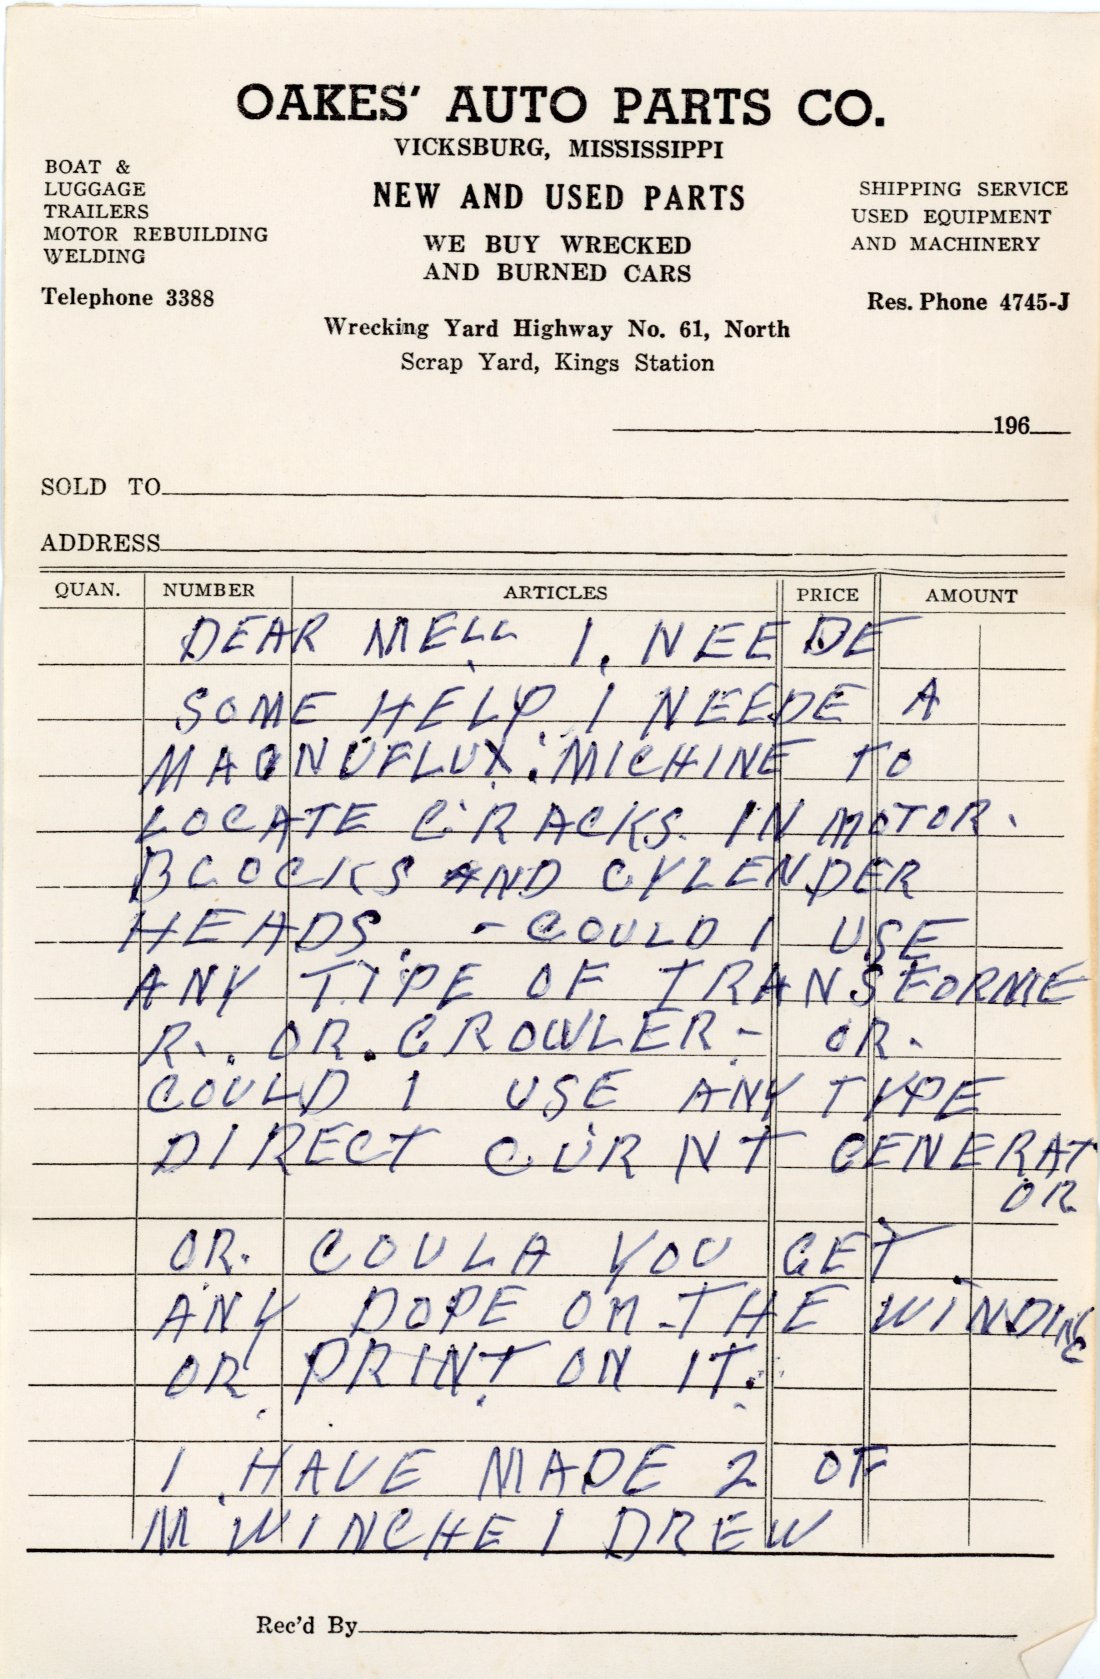 OAKES' AUTO PARTS CO.
VICKSBURG, MISSISSIPPI
NEW AND USED PARTS
WE BUY WRECKED
AND BURNED CARS
BOAT &
LUGGAGE
TRAILERS
MOTOR REBUILDING
WELDING
Telephone 3388
SHIPPING SERVICE
USED EQUIPMENT
AND MACHINERY
Res. Phone 4745-J
Wrecking Yard Highway No. 61, North
Scrap Yard, Kings Station
196
SOLD TO
ADDRESS
QUAN. NUMBER ARTICLES PRICE AMOUNT
DEAR MELL I. NEEDE
SOME HELP. I NEEDE A
MAGNUFLUX. MICHINE TO
LOCATE CRACKS. IN MOTOR.
BLOCKS AND CYLENDER
HEADS. - COULD I USE
ANY TYPE OF TRANSFORME
R. OR. GROWLER - OR.
COULD I USE ANY TYPE
DIRECT CURNT GENERAT
OR
OR. COULA YOU GET
ANY DOPE OM THE WINDING
OR PRINT ON IT.
I HAVE MADE 2 OF
M WINCHE I DREW
Rec'd By